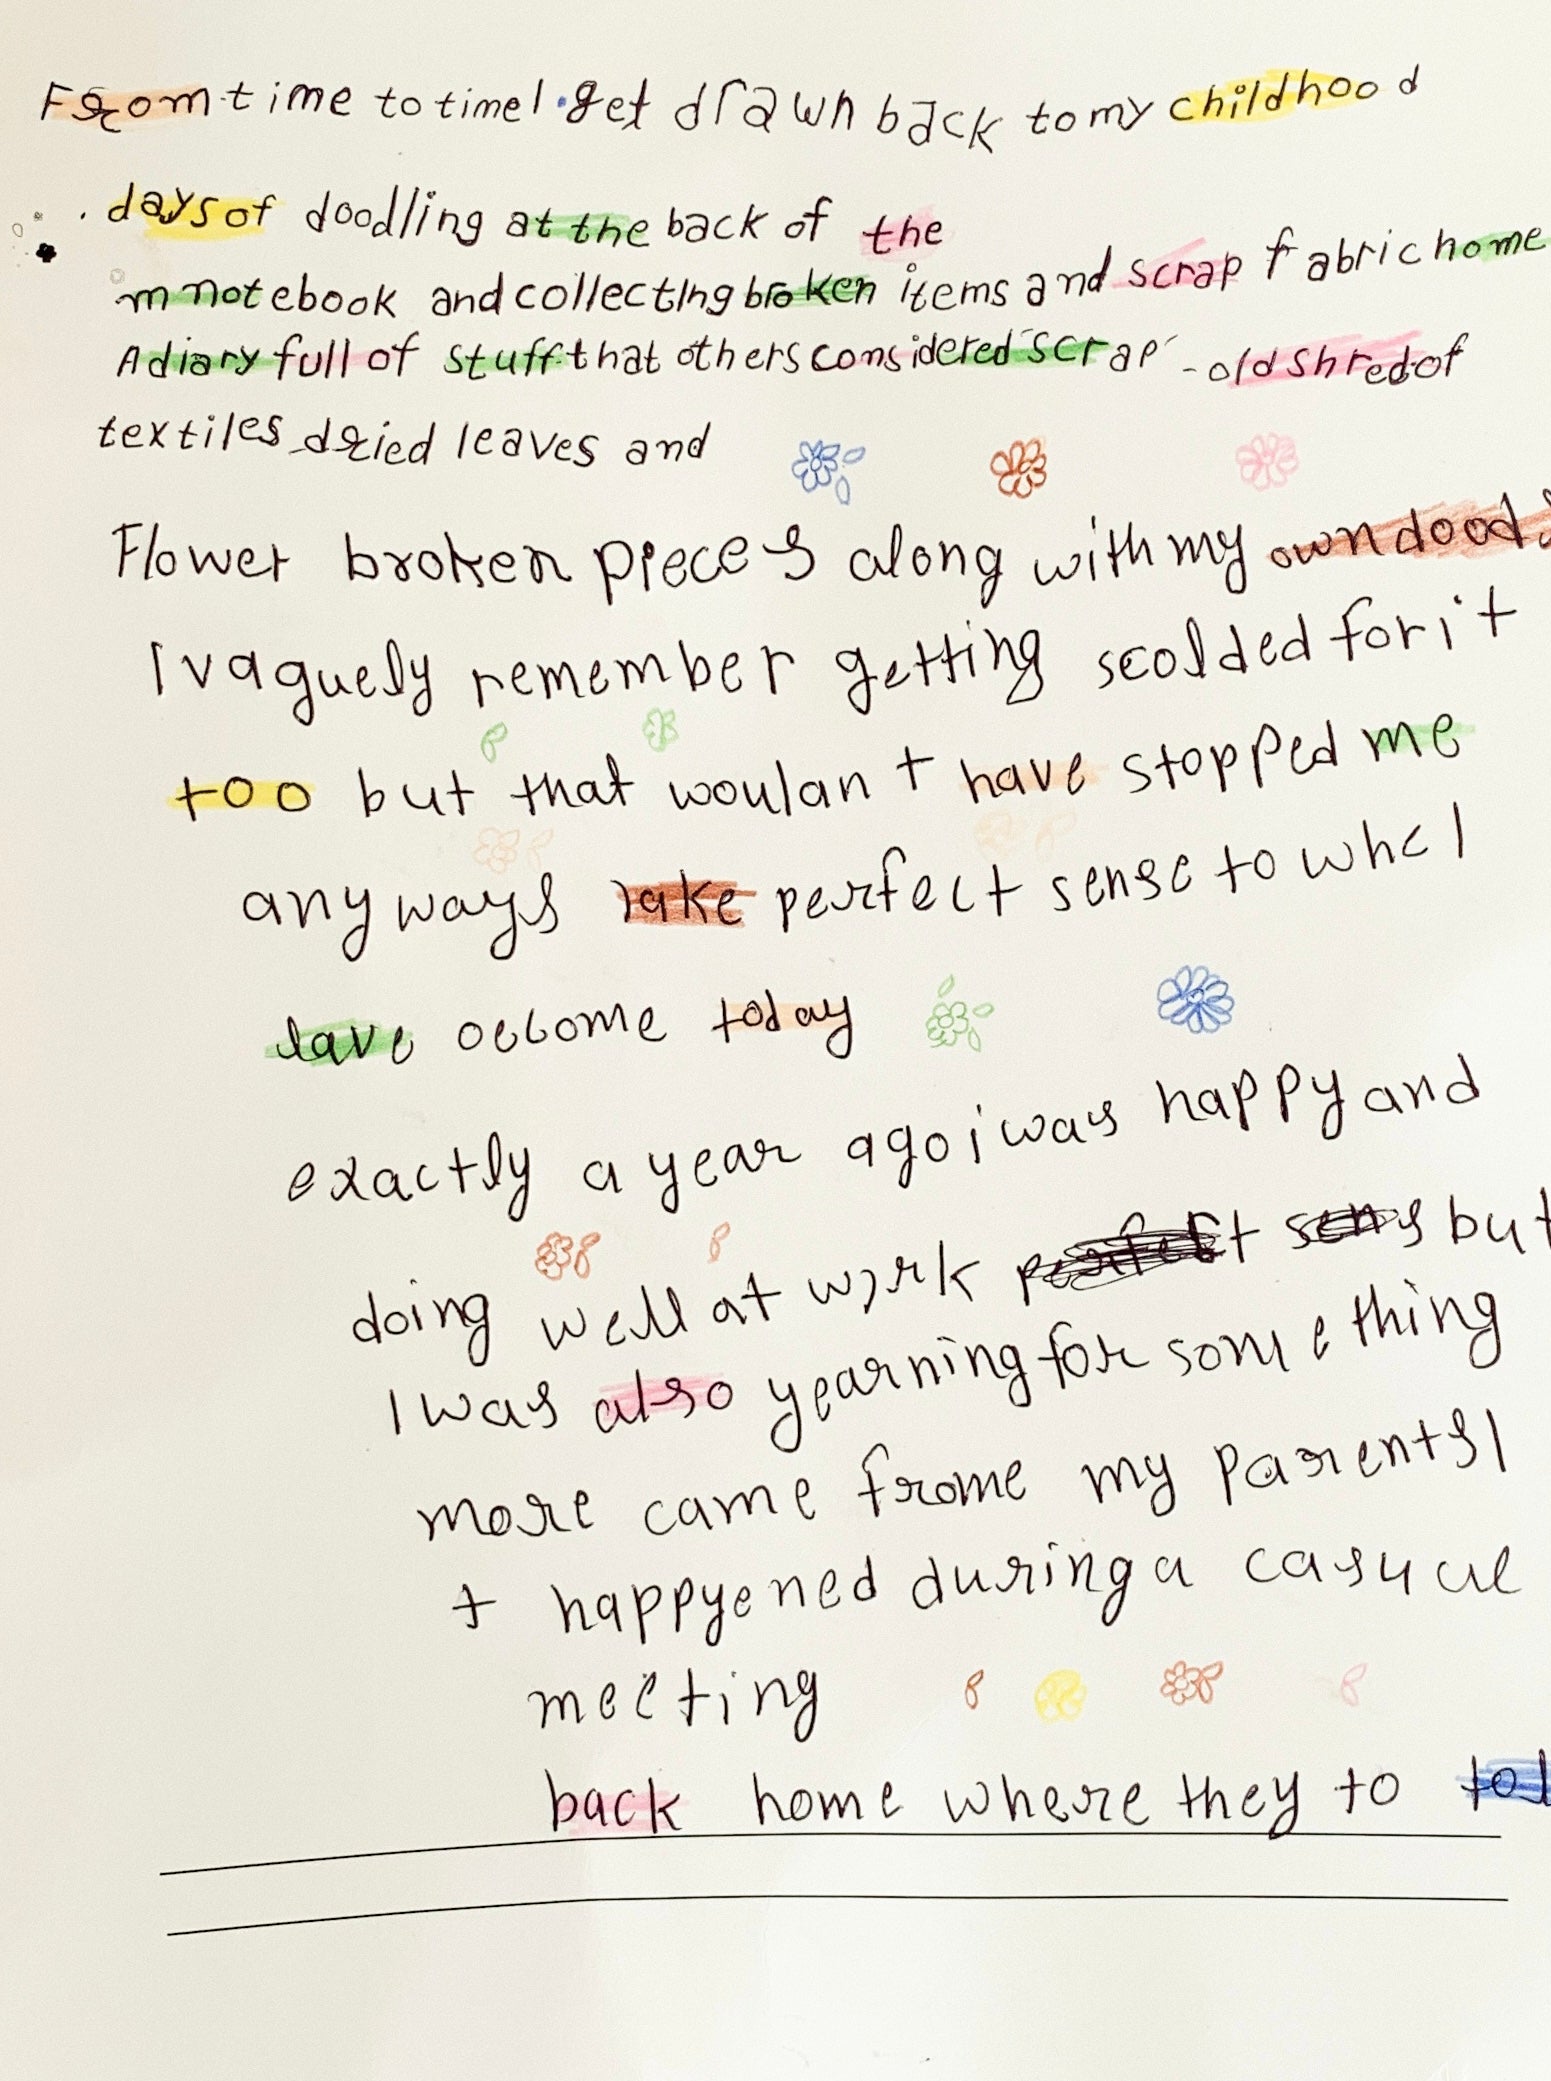 From time to time I get drawn back to my childhood
days of doodling at the back of the
m notebook and collecting broken items and scrap fabric home
A diary full of stuff that others considered "scrap" - old shred of
textiles dried leaves and
Flower broken pieces along with my own
I vaguely remember getting scolded for it
too but that woulan t have stopped me
any ways lake perfect sense to whc I
lave oecome today
exactly a year ago i was happy and
doing well at work but
I was also yearning for some thing
more came frome my parents I
t happyened during a casual
meeting
back home where they to